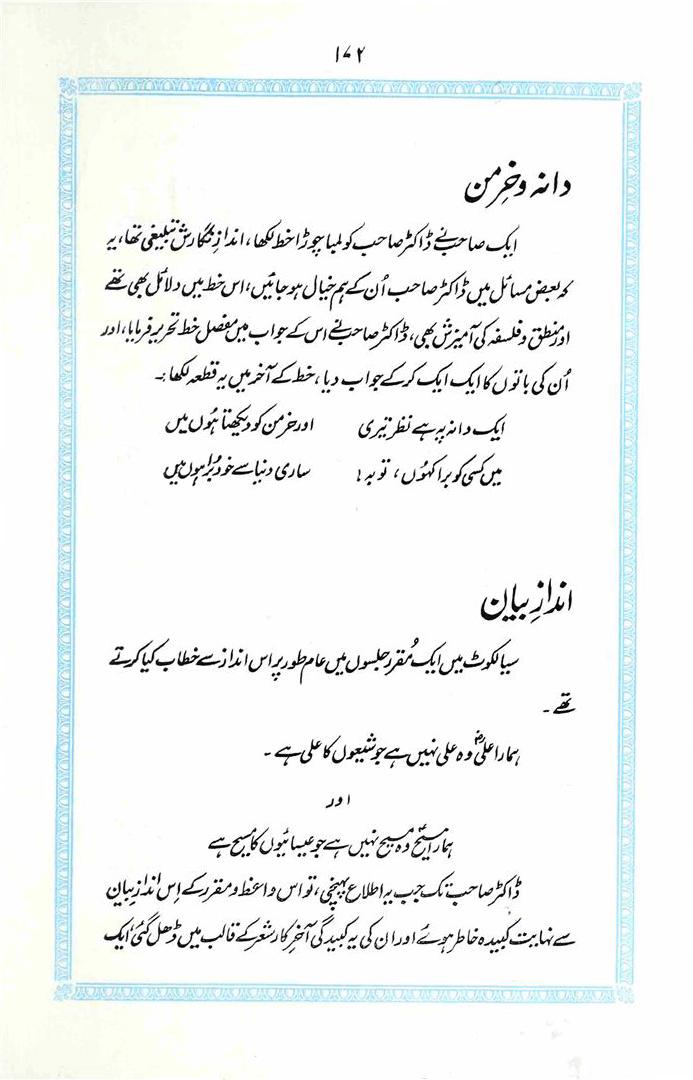 ۱۷۲
دانہ و خِرمن
ایک صاحب نے ڈاکٹر صاحب کو لمبا چوڑا خط لکھا، اندازِ نگارش تبلیغی تھا، یہ
کہ بعض مسائل میں ڈاکٹر صاحب اُن کے ہم خیال ہو جائیں، اس خط میں دلائل بھی تھے
اور منطق و فلسفہ کی آمیزش بھی، ڈاکٹر صاحب نے اس کے جواب میں مفصل خط تحریر فرمایا، اور
اُن کی باتوں کا ایک ایک کر کے جواب دیا، خط کے آخر میں یہ قطعہ لکھا :۔
ایک دانہ پہ ہے نظر تیری اور خرمن کو دیکھتا ہُوں میں
میں کسی کو برا کہُوں، توبہ! ساری دنیا سے خود بُرا ہوں میں
اندازِ بیان
سیالکوٹ میں ایک مُقرر جلسوں میں عام طور پر اس انداز سے خطاب کیا کرتے
تھے ۔
ہمارا علیؓ وہ علی نہیں ہے جو شیعوں کا علی ہے ۔
اور
ہمارا مسیحؑ وہ مسیح نہیں ہے جو عیسائیوں کا مسیح ہے
ڈاکٹر صاحب تک جب یہ اطلاع پہنچی، تو اس واعظ و مقرر کے اِس اندازِ بیان
سے نہایت کبیدہ خاطر ہوئے اور ان کی یہ کبیدگی آخر کار شعر کے قالب میں ڈھل گئی، ایک